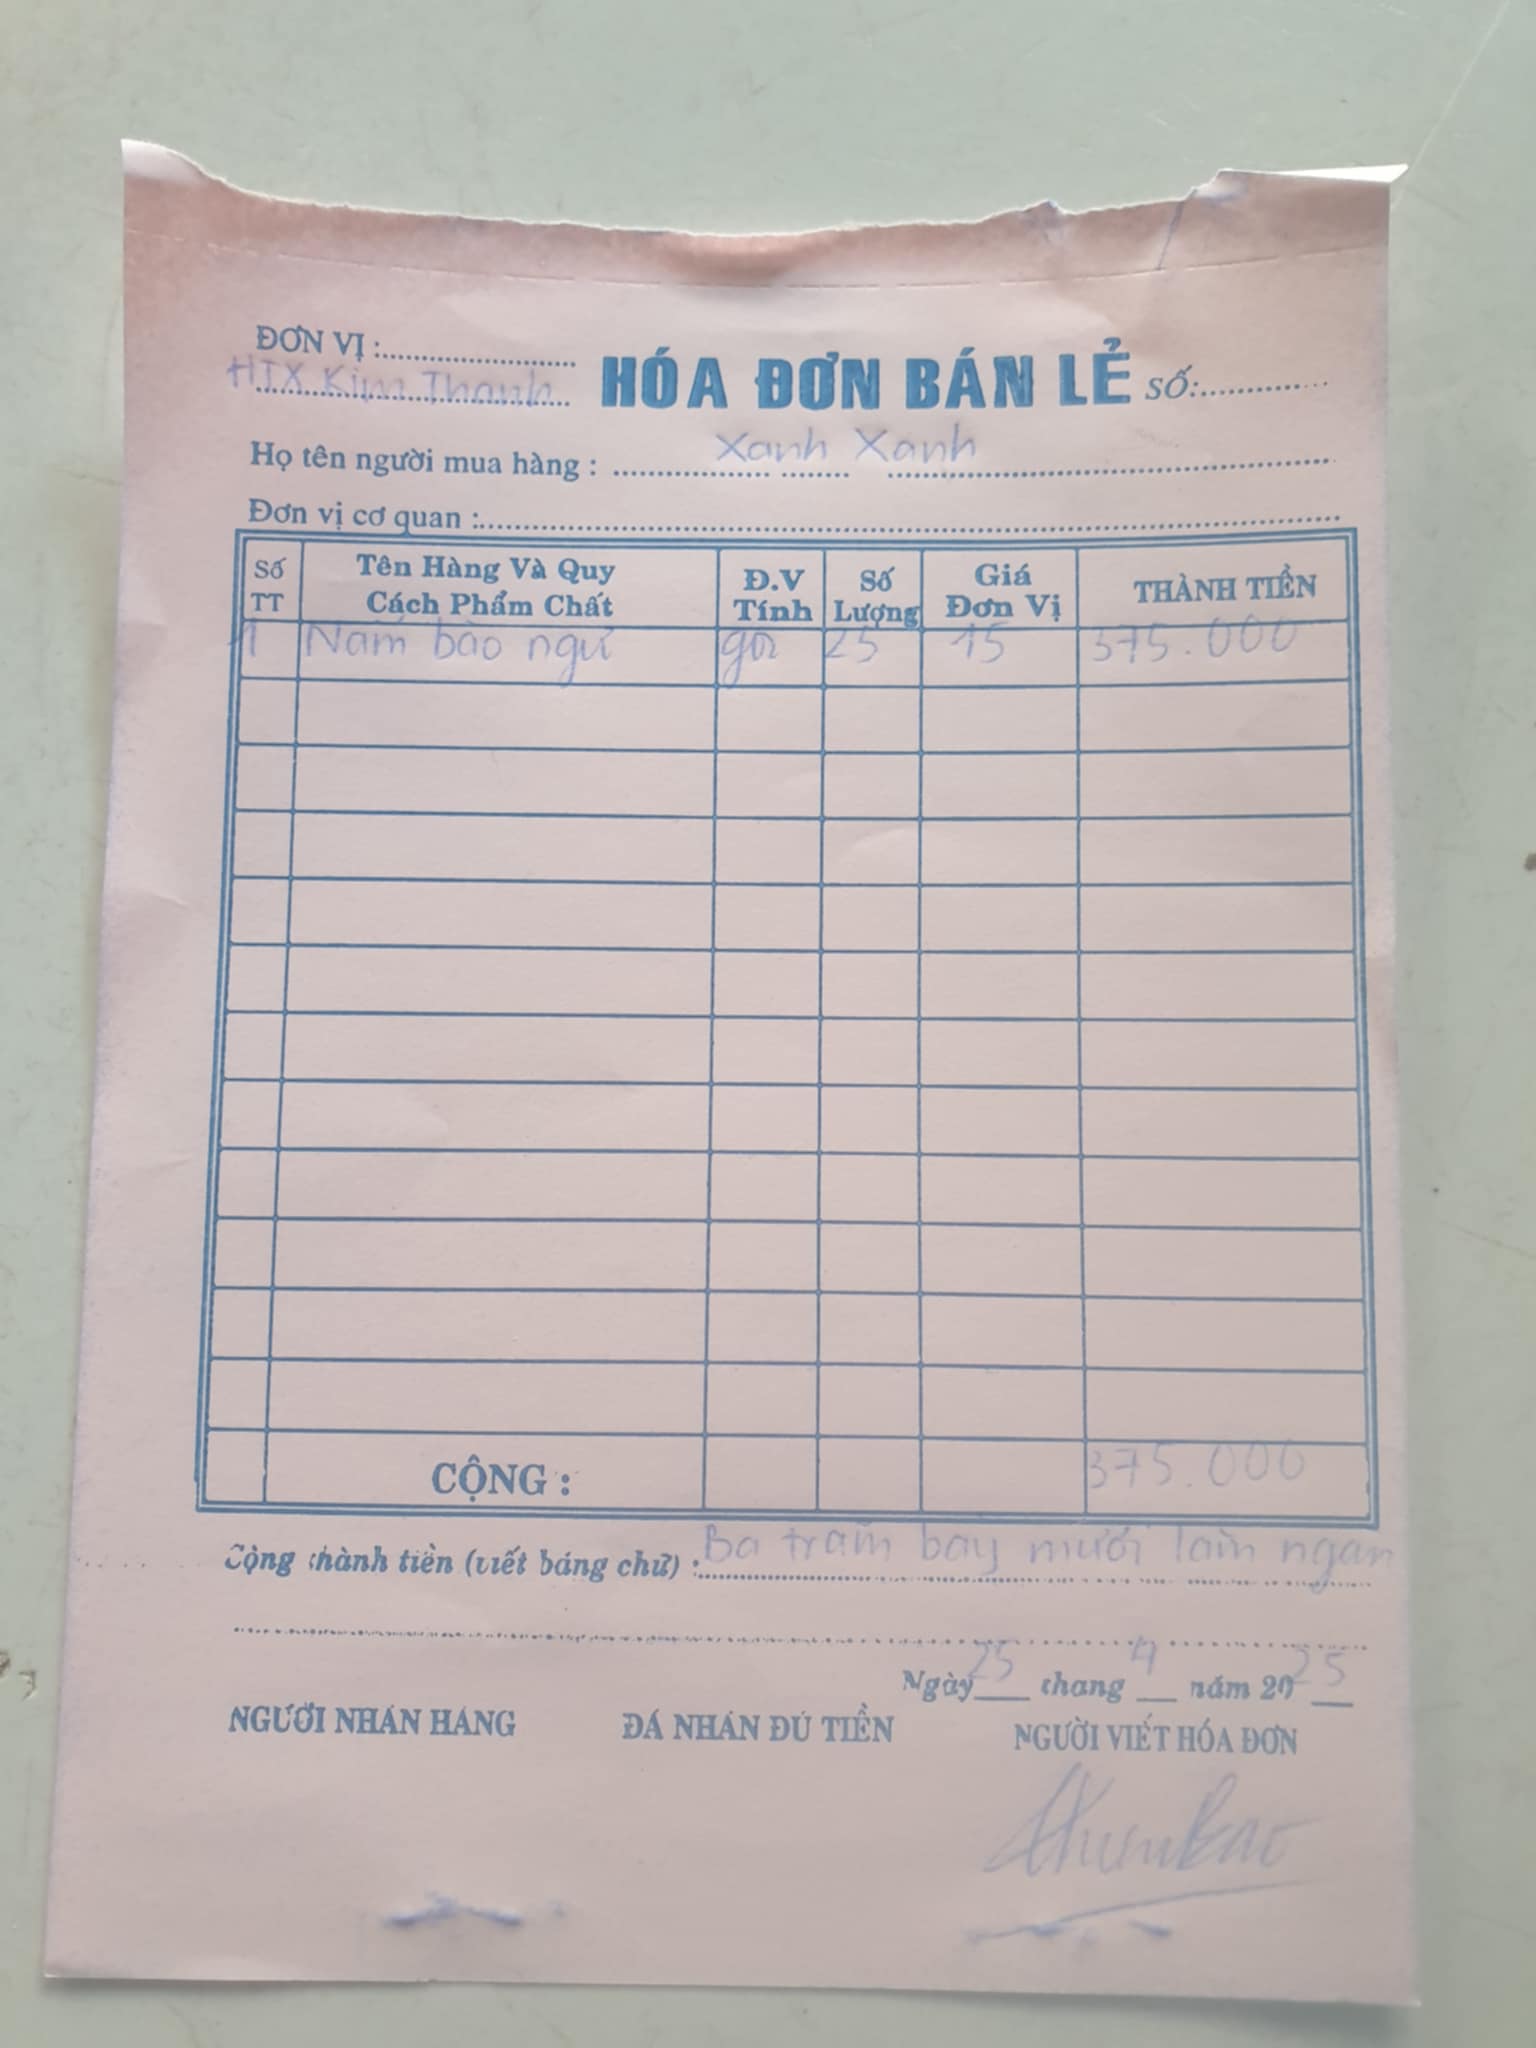 ĐƠN VỊ :
HTX Kim Thanh
HÓA ĐƠN BÁN LẺ SỐ:
Họ tên người mua hàng : Xanh Xanh
Đơn vị cơ quan :
Số TT
Tên Hàng Và Quy Cách Phẩm Chất
Đ.V Tính
Số Lượng
Giá Đơn Vị
THÀNH TIỀN
1 Nấm bào ngư gói 25 15 375.000
CỘNG : 375.000
Cộng thành tiền (viết bằng chữ) : Ba trăm bảy mươi lăm ngàn
Ngày 25 tháng 4 năm 2025
NGƯỜI NHẬN HÀNG ĐÃ NHẬN ĐỦ TIỀN NGƯỜI VIẾT HÓA ĐƠN